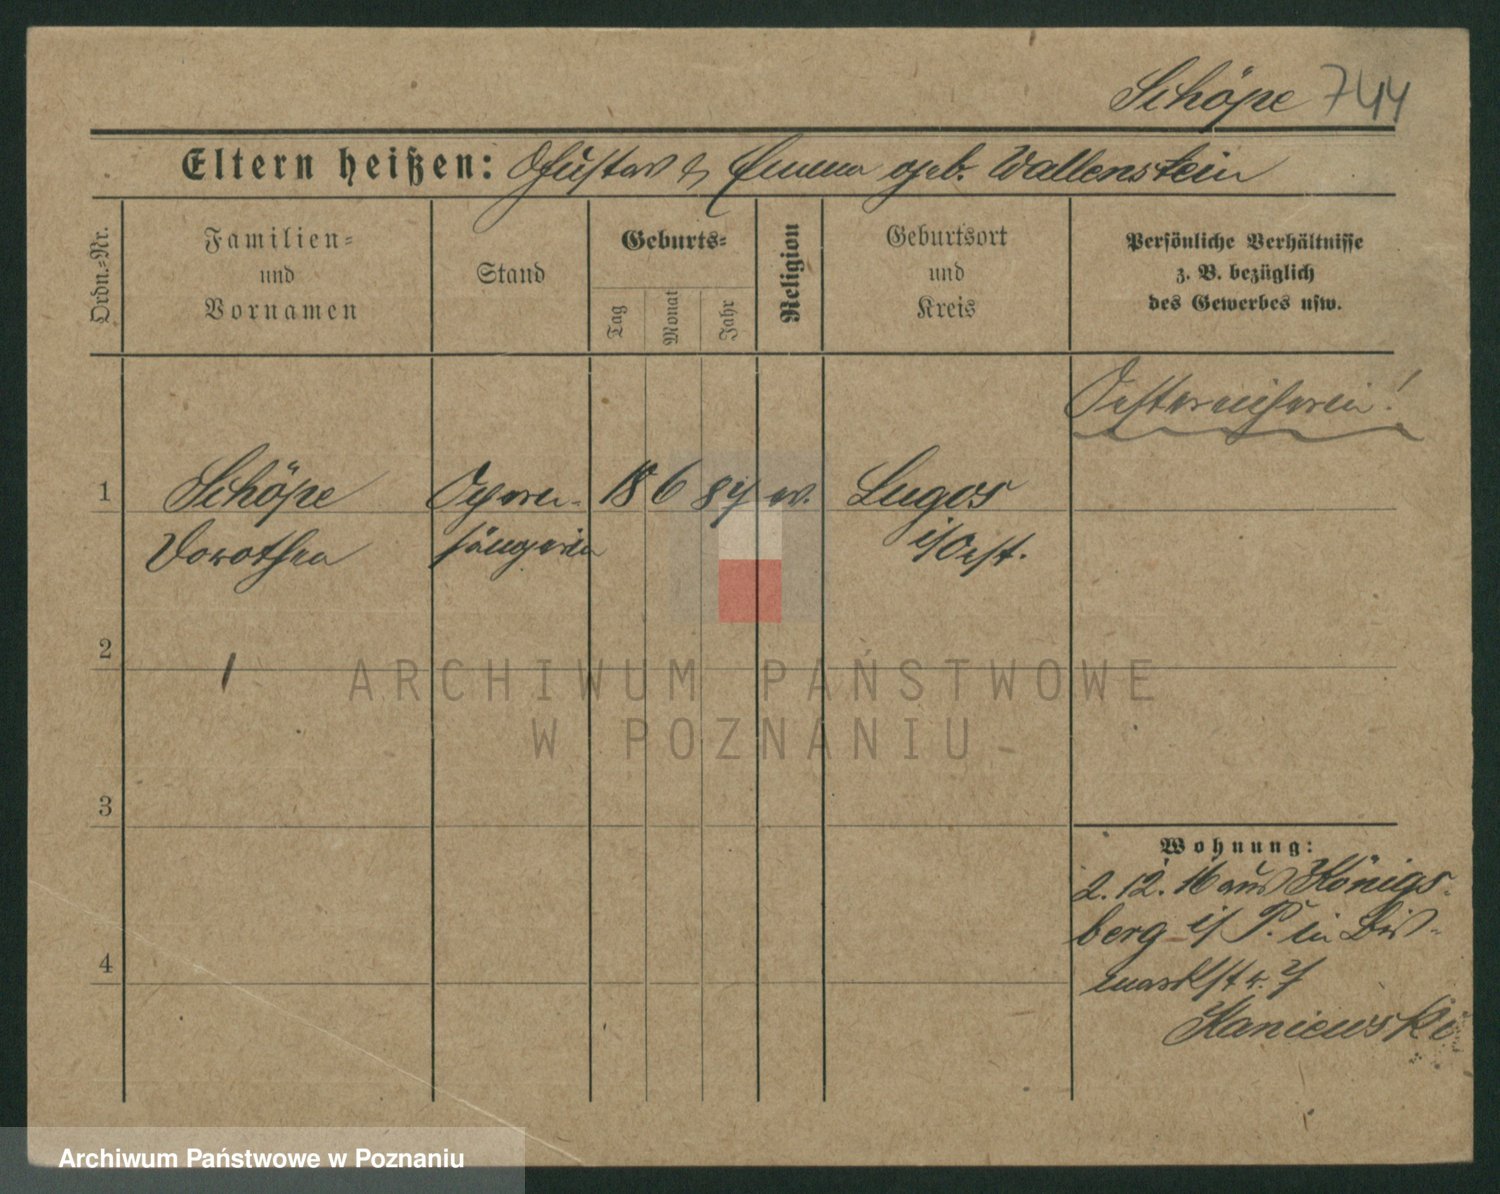 Schöpe 744
Eltern heißen: Gustav & Emma geb. Wallenstein
Ordn.-Nr.
Familien-
und
Vornamen
Stand
Geburts-
Tag
Monat
Jahr
Religion
Geburtsort
und
Kreis
Persönliche Verhältnisse
z. B. bezüglich
des Gewerbes usw.
Oesterreicherin!
1 Schöpe Opern- 18 6 84 ev. Lugos
Dorothea sängerin i/Oest.
2
ARCHIWUM PAŃSTWOWE
W POZNANIU
3
Wohnung:
2.12.16 aus Königs-
berg i/P. in Bis-
4
markstr.
Kaniewski
Archiwum Państwowe w Poznaniu